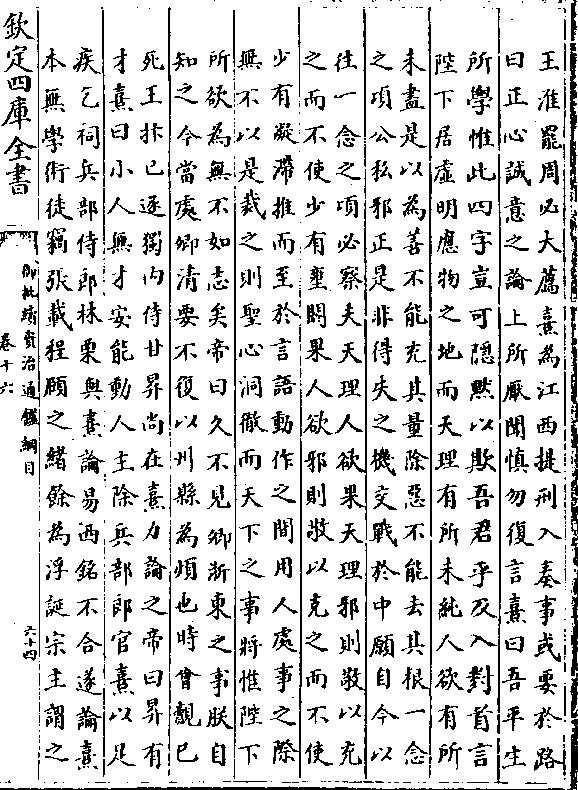 王淮罷周必大薦熹為江西提刑入奏事或要於路
曰正心誠意之論上所厭聞慎勿復言熹曰吾平生
所學惟此四字豈可隱黙以欺吾君乎及入對首言
陛下居虛明應物之地而天理有所未純人欲有所
未盡是以為善不能充其量除惡不能去其根一念
之項公私邪正是非得失之機交戰於中願自今以
往一念之項必察夫天理人欲果天理邪則敬以充
之而不使少有壅閼果人欲邪則敬以克之而不使
少有凝滯推而至於言語動作之間用人處事之際
無不以是裁之則聖心洞徹而天下之事將惟陛下
所欲為無不如志矣帝曰久不見卿浙東之事朕自
知之今當處卿清要不復以州縣為煩也時曾覿已
死王抃已逐獨内侍甘昇尚在熹力論之帝曰昇有
才熹曰小人無才安能動人主除兵部郎官熹以足
疾乞祠兵部侍郎林栗與熹論易西銘不合遂論熹
本無學術徒竊張載程頤之緒餘為浮誕宗主謂之
欽定四庫全書
御批續資治通鑑綱目
卷十六
六十四